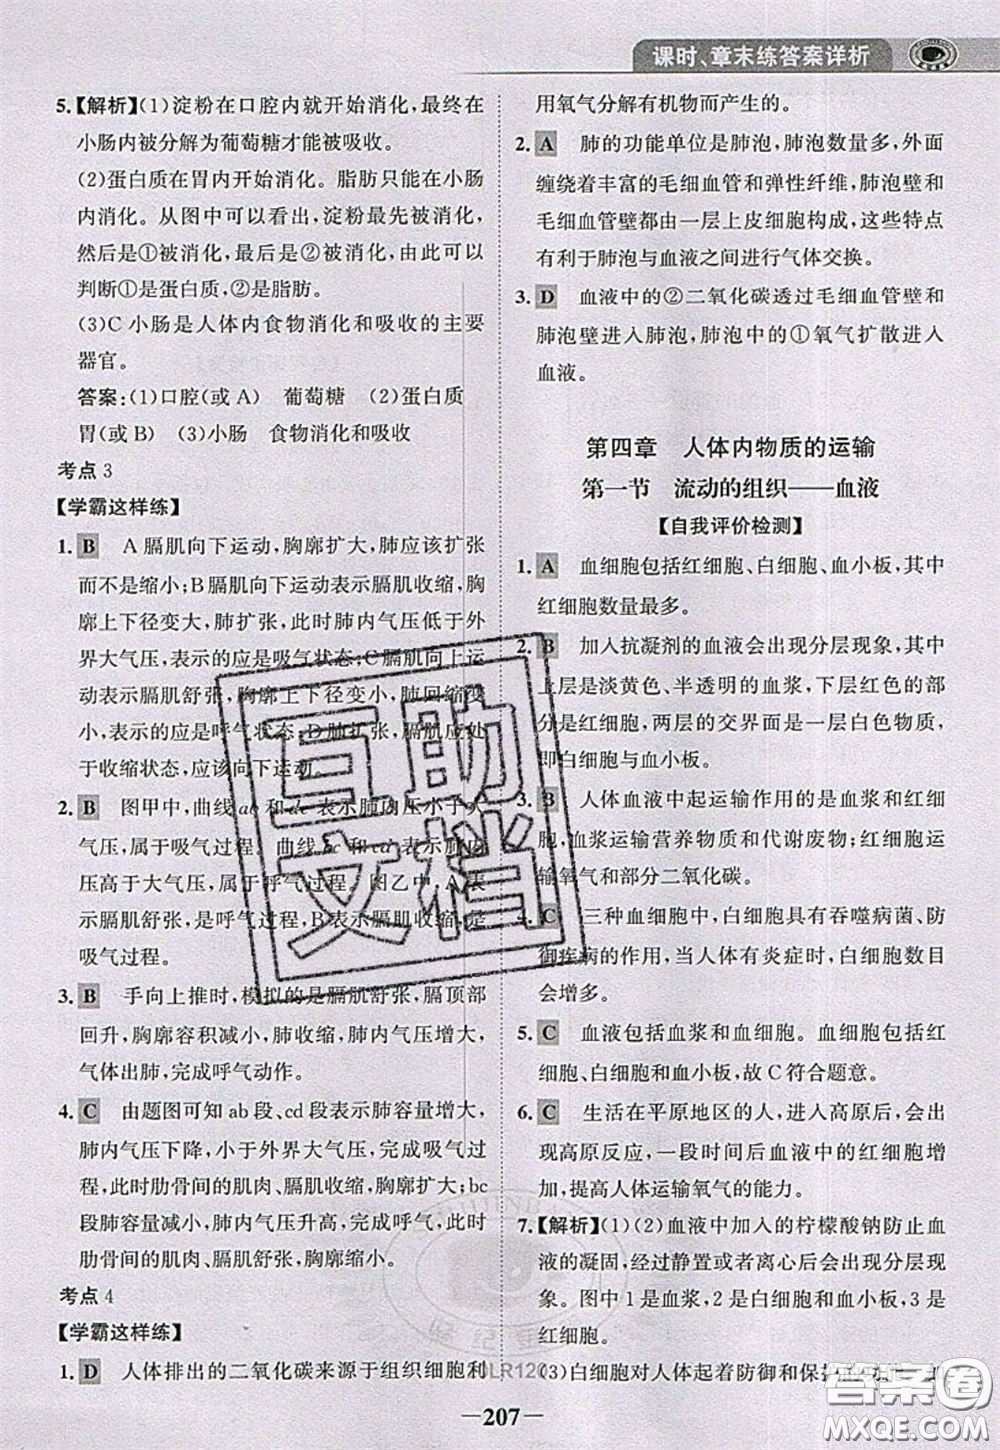 课时、章末练答案详析
5.【解析】(1)淀粉在口腔内就开始消化,最终在
小肠内被分解为葡萄糖才能被吸收。
(2)蛋白质在胃内开始消化。脂肪只能在小肠
内消化。从图中可以看出,淀粉最先被消化,
然后是①被消化,②最后被消化,由此可以
判断①是蛋白质,②是脂肪。
(3)C小肠是人体内食物消化和吸收的主要
器官。
答案:(1)口腔(或A) 葡萄糖 (2)蛋白质
胃(或B) (3)小肠 食物消化和吸收
考点3
【学霸这样练】
1. B A膈肌向下运动,胸廓扩大,肺应该扩张
而不是缩小;B膈肌向下运动表示膈肌收缩,胸
廓上下径变大,肺扩张,此时肺内气压低于外
界大气压,表示的应是吸气状态;C膈肌向上运
动表示膈肌舒张,胸廓上下径变小,肺回缩变
小,表示的应是呼气状态;D肺扩张,膈肌应处
于收缩状态,应该向下运动。
2. B 图甲中,曲线ab和de表示肺内气压小于大
气压,属于吸气过程。曲线bc和cd表示肺内气
压高于大气压,属于呼气过程。图乙中,A表
示膈肌舒张,是呼气过程,B表示膈肌收缩,是
吸气过程。
3. B 手向上推时,模拟的是膈肌舒张,膈顶部
回升,胸廓容积减小,肺收缩,肺内气压增大,
气体出肺,完成呼气动作。
4. C 由题图可知ab段、cd段表示肺容量增大,
肺内气压下降,小于外界大气压,完成吸气,
此时肋骨间的肌肉、膈肌收缩,胸廓扩大;bc
段肺容量变小,肺内气压升高,完成呼气,此时
肋骨间的肌肉、膈肌舒张,胸廓缩小。
考点4
【学霸这样练】
1. D 人体排出的二氧化碳来源于组织细胞利
用氧气分解有机物而产生的。
2. A 肺的功能单位是肺泡,肺泡数量多,外面
缠绕着丰富的毛细血管和弹性纤维,肺泡壁和
毛细血管壁都由一层上皮细胞构成,这些特点
有利于肺泡与血液之间进行气体交换。
3. D 血液中的②二氧化碳透过毛细血管壁和
肺泡壁进入肺泡,肺泡中的①氧气扩散进入
血液。
第四章 人体内物质的运输
第一节 流动的组织——血液
【自我评价检测】
1. A 血细胞包括红细胞、白细胞、血小板,其中
红细胞数量最多。
2. B 加入抗凝剂的血液会出现分层现象,其中
上层是淡黄色、半透明的血浆,下层红色的部
分是红细胞,两层的交界面是一层白色物质,
即白细胞与血小板。
3. B 人体血液中起运输作用的是血浆和红细
胞,血浆运输营养物质和代谢废物;红细胞运
输氧气和部分二氧化碳。
4. C 三种血细胞中,白细胞具有吞噬病菌、防
御疾病的作用,当人体有炎症时,白细胞数目
会增多。
5. C 血液包括血浆和血细胞。血细胞包括红
细胞、白细胞和血小板,故C符合题意。
6. C 生活在平原地区的人,进入高原后,会出
现高原反应,一段时间后血液中的红细胞会增
加,提高人体运输氧气的能力。
7.【解析】(1)(2)血液中加入的柠檬酸钠防止血
液的凝固,经过静置或者离心后会出现分层现
象。图中1是血浆,2是白细胞和血小板,3是
红细胞。
(3)白细胞对人体起着防御和保护
互助
文档
JLR120
答案圈
MXQE.COM
207